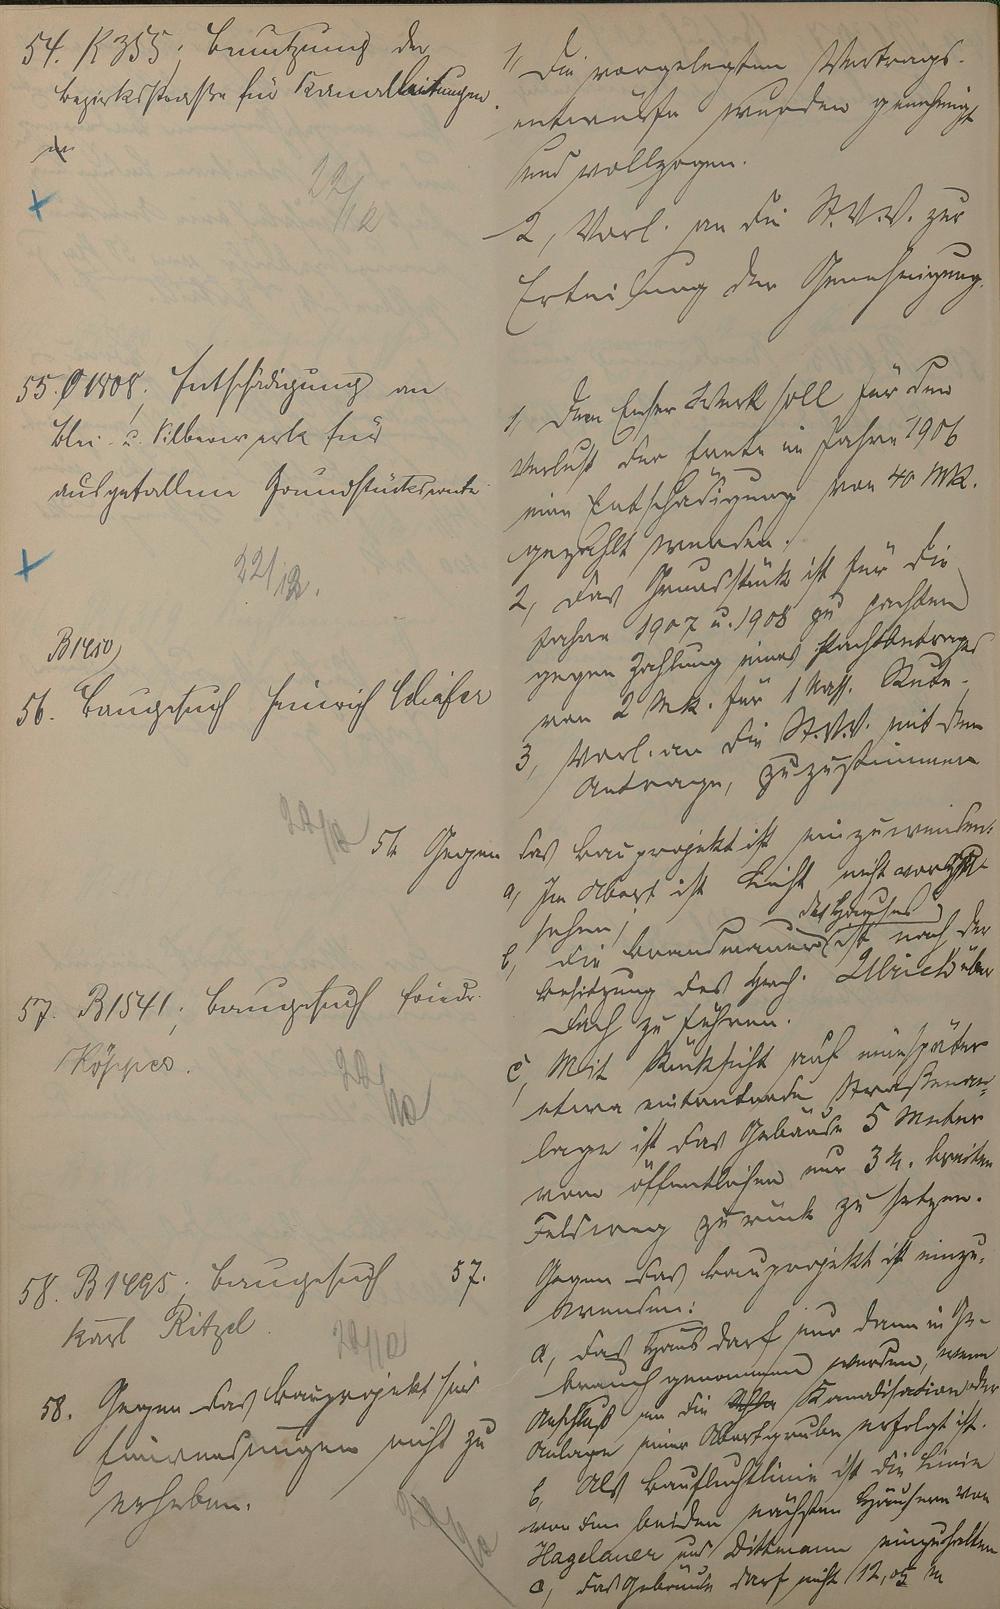 54. K 355; Benutzung der
Bezirksstraße für Kanalleitungen.
22/12
1, Die vorgelegten Vertrags-
entwürfe wurden genehmigt
und vollzogen.
2, Vorl. an die St.V.V. zur
Erteilung der Genehmigung.
55. O 1808; Entschädigung an
Blei- u. Silberwerk für
ausgefallene Grundstücksrente
22/12.
1, Dem Emser Werk soll für den
Verlust der Ernte im Jahre 1906
eine Entschädigung von 40 Mk.
gezahlt werden.
2, Das Grundstück ist für die
Jahre 1907 u. 1908 zu pachten
gegen Zahlung eines Pachtbetrages
von 2 Mk. für 1 Nass. Rute.
3, Vorl. an die St.V.V. mit dem
Antrage, zuzustimmen
B 1450,
56. Baugesuch Heinrich Schäfer
22/12
56 Gegen das Bauprojekt ist einzuwenden:
a, Im Abort ist Licht nicht vorge-
sehen;
b, die Brandmauer des Hauses ist nach der
Besitzung des Hrch. Ulrich über
Dach zu führen.
c, Mit Rücksicht auf eine später
etwa eintretende Straßenan-
lage ist das Gebäude 5 Meter
vom öffentlichen nur 3 M. breiten
Feldweg zurück zu setzen.
57. B 1541; Baugesuch Friedr.
Köppes.
22/12
57. Gegen das Bauprojekt ist einzu-
wenden:
a, Das Haus darf nur dann in Ge-
brauch genommen werden, wenn
Anschluß an die Kanalisation oder
Anlage einer Abortgrube erfolgt ist.
b, Als Baufluchtlinie ist die Linie
von den beiden nächsten Häusern von
Hagelauer und Dittmann einzuhalten
c, das Gebäude darf nicht 12,05 m
58. B 1495; Baugesuch
Karl Ritzel.
22/12
58. Gegen das Bauprojekt sind
Einwendungen nicht zu
erheben.
22/12